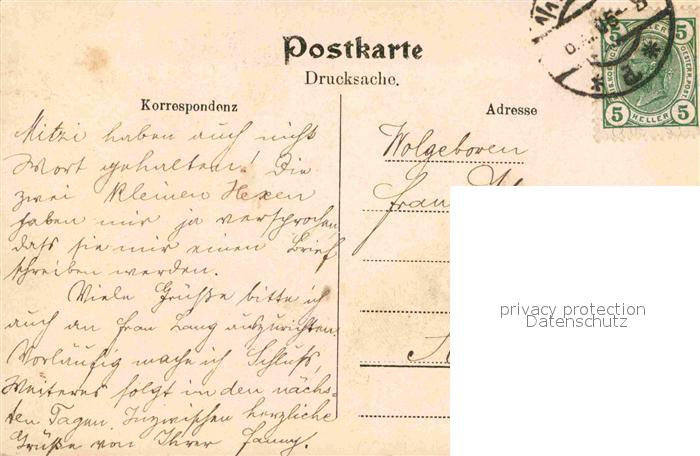 Postkarte
Drucksache.
Korrespondenz
Mitzi haben auch nicht
Wort gehalten! Die
zwei kleinen Hexen
haben mir ja versprochen,
dass sie mir einen Brief
schreiben werden.
Viele Grüße bitte ich
auch an Frau Lang auszurichten.
Vorläufig mache ich Schluss,
Weiteres folgt in den näch-
ten Tagen. Inzwischen herzliche
Grüße von Ihrer Fanny.
Adresse
Wolgeboren
Frau
5 5
5 5
HELLER
privacy protection
Datenschutz